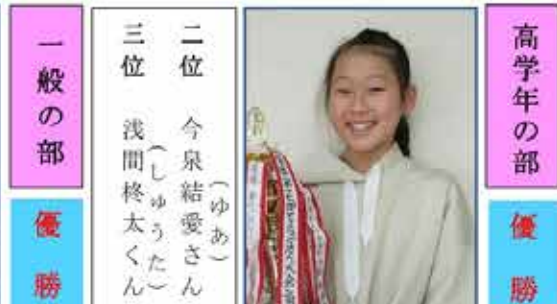 高学年の部
優勝
二位 今泉結愛さん
(ゆあ)
三位 浅間柊太くん
(しゅうた)
一般の部
優勝